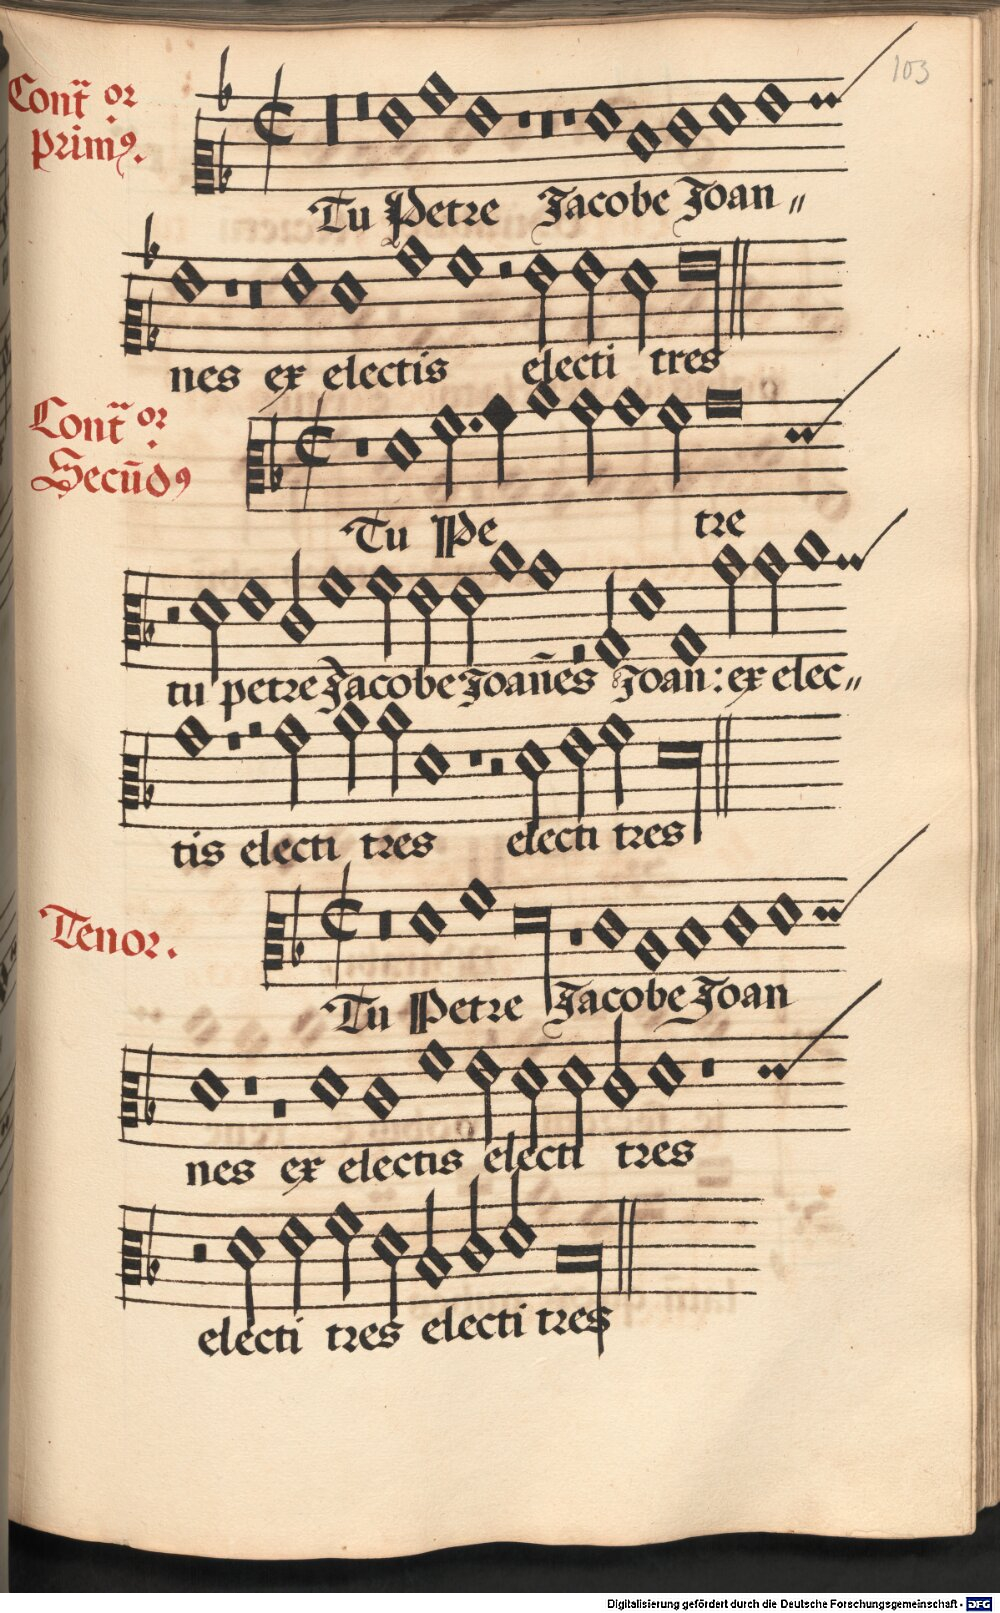 103
Cont̄ or
prim9.
Tu Petre Jacobe Joan〃
nes ex electis electi tres
Cont̄ or
Secūd9
Tu Pe tre
tu petre Jacobe Joan̄es Joan: ex elec〃
tis electi tres electi tres
Tenor.
Tu Petre Jacobe Joan
nes ex electis electi tres
electi tres electi tres
Digitalisierung gefördert durch die Deutsche Forschungsgemeinschaft - DFG